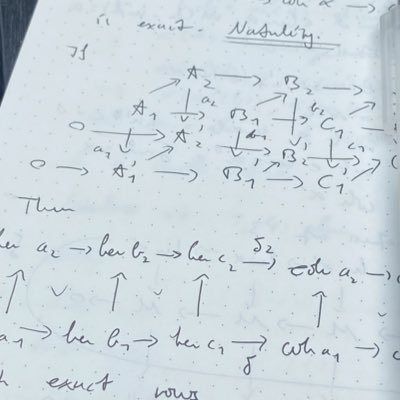 is exact. Naturality.
If
A₂ → B₂ →
A₁ ↓ a₂ B₁ → b₂ C₁ →
0 → A₂' → B₂'
a₁ b₁ c₁
0 → A₁' → B₁' → C₁'
Then
ker a₂ → ker b₂ → ker c₂ →δ₂ coh a₂ →
↑ ↑ ↑ ↑
a₁ → ker b₁ → ker c₁ →δ coh a₁ →
exact rows